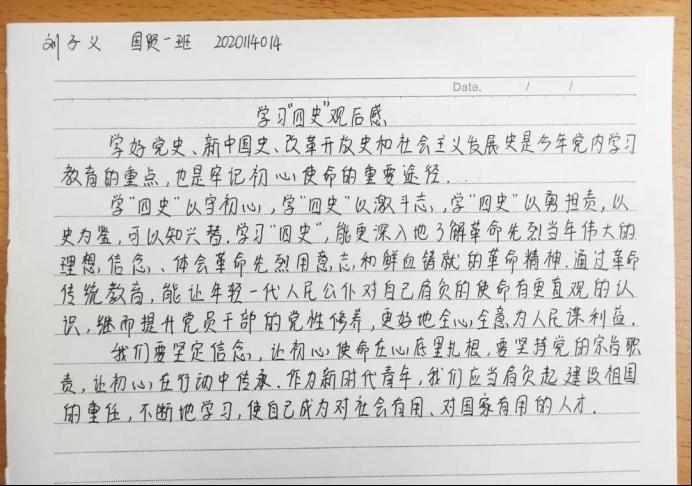 刘子义 国贸一班 2020114014
Date. / /
学习“四史”观后感
学好党史、新中国史、改革开放史和社会主义发展史是今年党内学习
教育的重点,也是牢记初心使命的重要途径.
学“四史”以守初心,学“四史”以激斗志,学“四史”以勇担责,以
史为鉴,可以知兴替.学习“四史”,能更深入地了解革命先烈当年伟大的
理想信念、体会革命先烈用意志和鲜血铸就的革命精神.通过革命
传统教育,能让年轻一代人民公仆对自己肩负的使命有更直观的认
识,继而提升党员干部的党性修养,更好地全心全意为人民谋利益.
我们要坚定信念,让初心使命在心底里扎根,要坚持党的宗旨职
责,让初心在行动中传承.作为新时代青年,我们应当肩负起建设祖国
的重任,不断地学习,使自己成为对社会有用、对国家有用的人才.